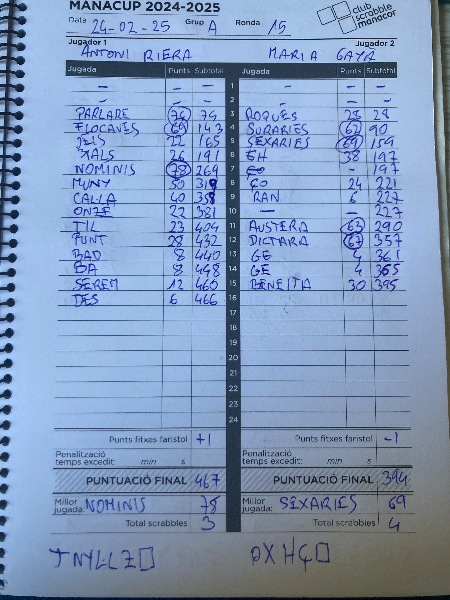 MANACUP 2024-2025
club scrabble manacor
Data 24-02-25 Grup A Ronda 15
Jugador 1 Jugador 2
ANTONI RIERA MARIA GAYÀ
Jugada Punts Subtotal Jugada Punts Subtotal
— — 1 — —
— — 2 — —
PARLARE 74 74 3 ROQUES 28 28
FLOCAVES 69 143 4 SURARIES 62 90
DELS 22 165 5 SEXARIES 69 159
XALS 26 191 6 EH 38 197
NOMINIS 78 269 7 ÇO - 197
MUNY 50 319 8 ÇO 24 221
CALLA 40 359 9 RAN 6 227
ONZE 22 381 10 — 227
TIL 23 404 11 AUSTERA 63 290
PUNT 28 432 12 DICTARA 67 357
BAD 8 440 13 GE 4 361
BA 8 448 14 GE 4 365
SEREM 12 460 15 BENEITA 30 395
DES 6 466 16
17
18
19
20
21
22
23
24
Punts fitxes faristol +1 Punts fitxes faristol -1
Penalització temps excedit: min s Penalització temps excedit: min s
PUNTUACIÓ FINAL 467 PUNTUACIÓ FINAL 394
Millor jugada: NOMINIS 78 Millor jugada: SEXARIES 69
Total scrabbles 3 Total scrabbles 4
JNYLLZ□ QXHÇ□